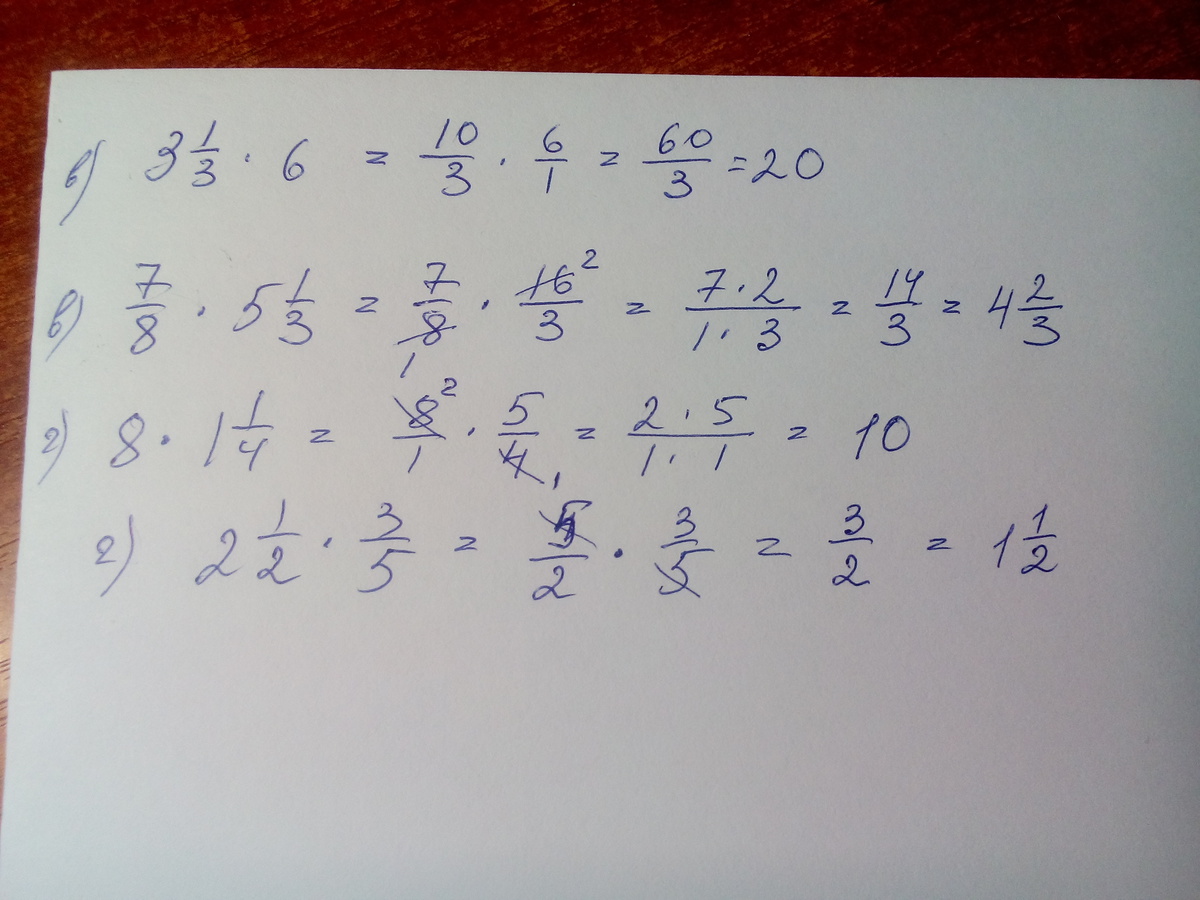 в) 3 1/3 · 6 = 10/3 · 6/1 = 60/3 = 20
в) 7/8 · 5 1/3 = 7/8 1 · 16 2/3 = 7·2/1·3 = 14/3 = 4 2/3
г) 8 · 1 1/4 = 8 2/1 · 5/4 1 = 2·5/1·1 = 10
г) 2 1/2 · 3/5 = 5/2 · 3/5 = 3/2 = 1 1/2